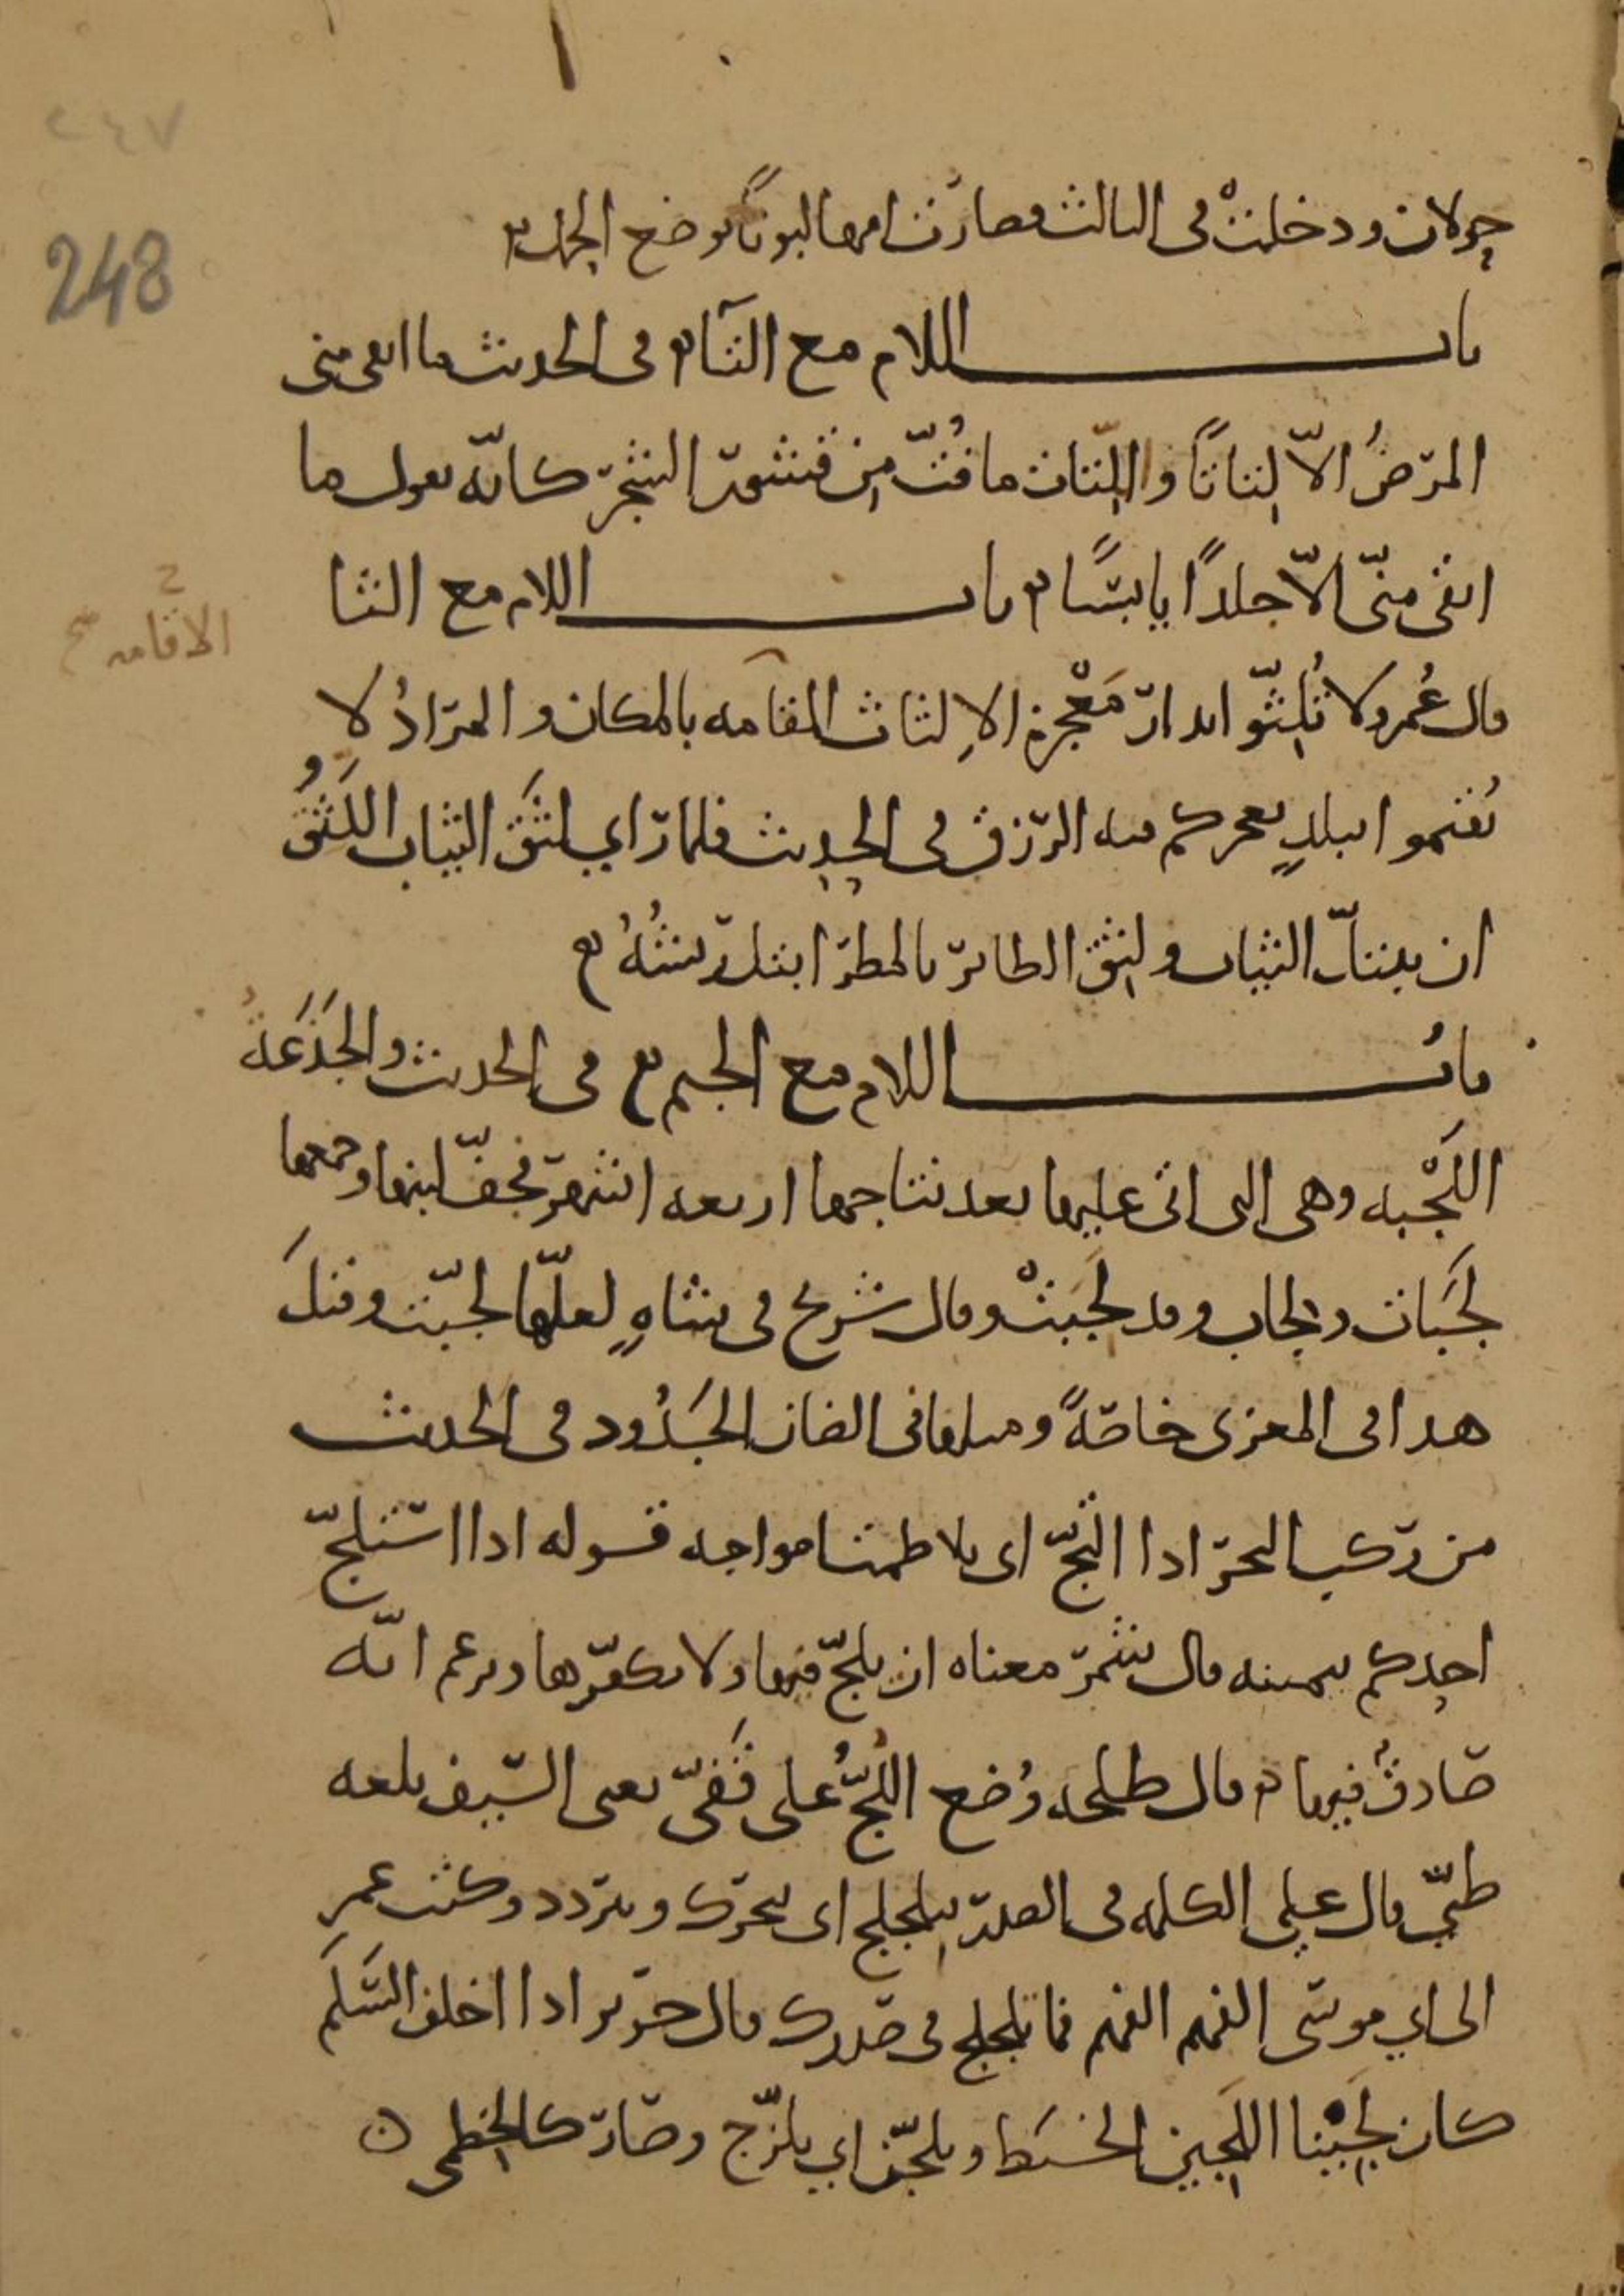 ٢٤٧
248
حولان ودخلتْ في الثالث فصارت امها لبونًا بوضع الحمل
باب اللام مع التاء في الحديث ما ابقى مني
المرضُ الاّ لِتاتًا واللِّتات ما فُتّ من قشور الشجر كانّه يقول ما
ابقى منّي الاّ جلدًا يابسًا باب اللام مع الثا
قال عُمر ولا تُلِثّوا بدار مَعْجِزة الاِلثاث المقامه بالمكان والمرادُ لا
الاقامه صح
تُقيموا ببلدٍ يعجزكم فيه الرزق في الحديث فلما راي لَثَق الثياب اللَثَقُ
ان يبتلّ الثياب ولَثِق الطائر بالمطر ابتل ريشُهُ
بابُ اللام مع الجيم في الحديث والجَذَعَةُ
اللَجْبه وهي التي اتى عليها بعد نتاجها اربعه اشهر فخفّ لبنها وجمعها
لَجَبات ولجاب وقد لَجبَتْ وقال شريح في شاةٍ لعلّها لجّبت وقيل
هذا في المعزى خاصّةً ومثلها في الضان الجَدُود في الحديث
من ركب البحر اذا التجّ اي تلاطمت امواجه قوله اذا استلجّ
احدكم بيمينه قال شمر معناه ان يلجّ فيها ولا يكفّرها ويزعم انّه
صادقٌ فيها قال طلحه وُضع اللُجُّ على قَفَيّ يعني السيف بلغه
طيّ قال علي الكلمه في الصدر تلجلج اي تتحرك وتتردد وكتب عمر
الى ابي موسى الفهم الفهم فما تلجلج في صدرك قال جرير اذا اخلف السَلَم
كان لَجِينا اللَجين الخَبَط وتلجّن اي تلزّج وصار كالخطمي